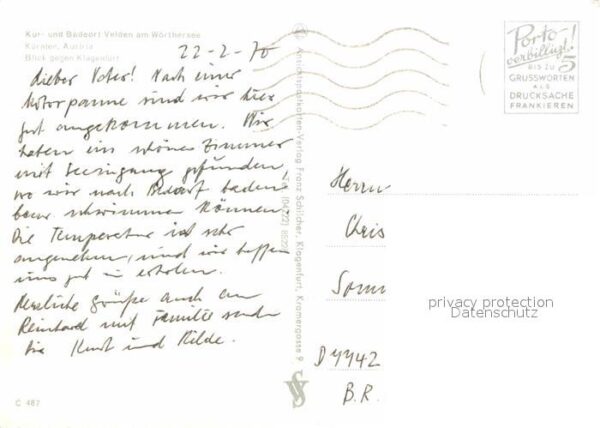 Kur- und Badeort Velden am Wörthersee
Kärnten, Austria
Blick gegen Klagenfurt
22-2-70
Lieber Vater! Nach einer
Motorpanne sind wir hier
gut angekommen. Wir
haben ein schönes Zimmer
mit Seezugang gefunden,
wo wir nach Bedarf baden
bzw. schwimmen können.
Die Temperatur ist sehr
angenehm, und wir hoffen
uns gut zu erholen.
Herzliche Grüße auch an
Reinhard mit Familie
die Kurt und Hilde.
C 487
Ansichtspostkarten-Verlag Franz Schilcher, Klagenfurt, Kramergasse 9
Porto-
verbilligt!
BIS ZU 5
GRUSSWORTEN
ALS
DRUCKSACHE
FRANKIEREN
Herrn
Chris
Somm
privacy protection
Datenschutz
D 4942
B.R.